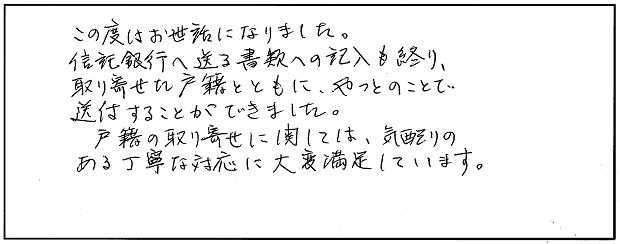 この度はお世話になりました。
信託銀行へ送る書類への記入も終り、
取り寄せた戸籍とともに、やっとのことで
送付することができました。
戸籍の取り寄せに関しては、気配りの
ある丁寧な対応に大変満足しています。